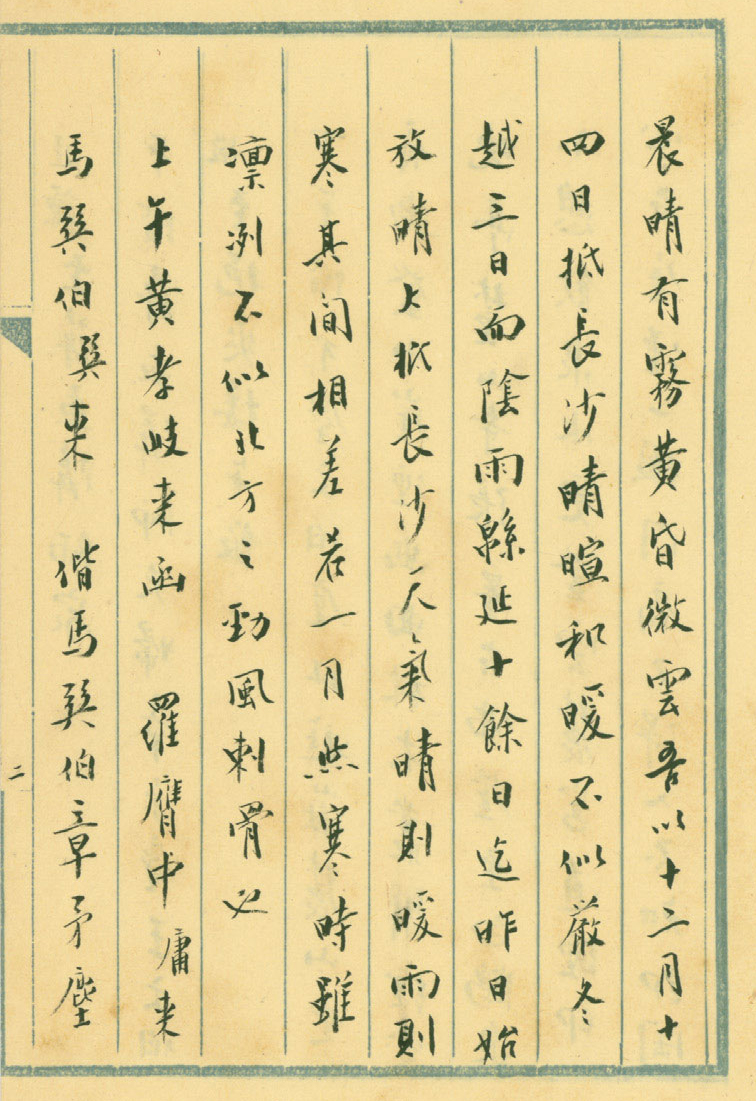 晨晴有霧黄昏微雲吾以十二月十
四日抵長沙晴暄和暖不似嚴冬
越三日而陰雨緜延十餘日迄昨日始
放晴大抵長沙天氣晴則暖雨則
寒其間相差若一月然寒時雖
凛冽不似北方之勁風刺骨也
上午黄孝岐来函　羅膺中庸来
馬巽伯巽来　偕馬巽伯章矛塵
二